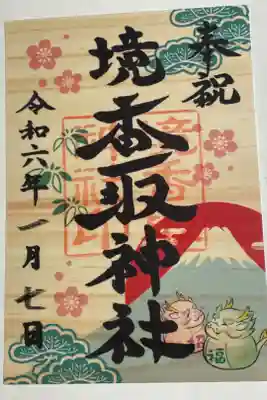 奉祝
境香取神社
令和六年一月七日
福